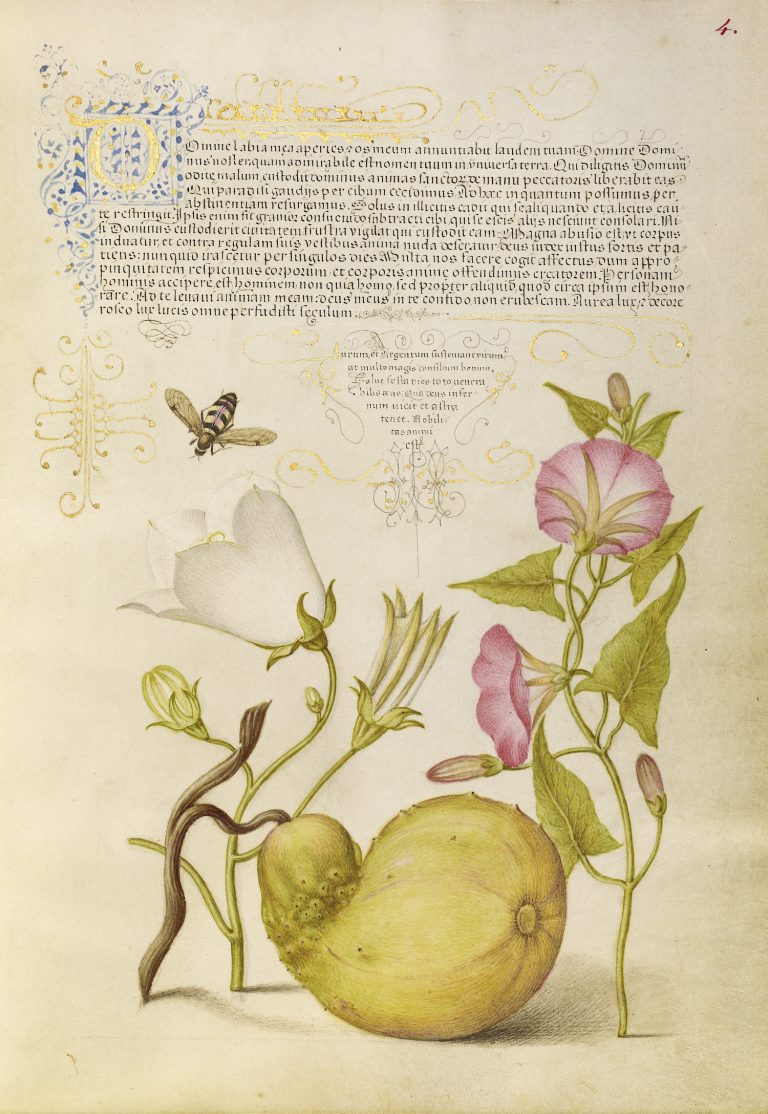 4.
Domine labia mea aperies: et os meum annuntiabit laudem tuam. Domine Domi-
nus noster quam admirabile est nomen tuum in universa terra. Qui diligitis Dominum
odite malum, custodit dominus animas sanctor de manu peccatoris liberabit eas.
Qui paradisi gaudys per cibum cecidimus. Ad hæc in quantum possumus per
abstinentiam resurgamus. Solus in illicitis cadit qui se aliquando et a licitis cau-
te restringit. Ipsis enim fit gravior consuendo subtracti cibi qui se escis alys nesciunt consolari. Ni
si Dominus custodierit civitatem frustra vigilat qui custodit eam. Magna abusio est si corpus
induatur, et contra regulam suis vestibus anima nuda deseratur. deus iudex iustus fortis et pa-
tiens: nunquid irascetur per singulos dies. Multa nos facere cogit affectus, dum appro-
pinquitatem respicimus corporum: et corporis animæ offendimus creatorem. Personam
hominis accipere est hominem non quia homo, sed propter aliquid quod circa ipsum est hono-
rare. Ad te levavi animam meam: deus meus in te confido non erubescam. Aurea luce et decore
roseo lux lucis omne perfudisti seculum.
Aurum, et Argentum sustentant vitam,
at multo magis consilium bonum.
Salve festa dies toto venera-
bilis ævo. Qua deus infer-
num vicit et astra
tenet. Nobili-
tas animi
est